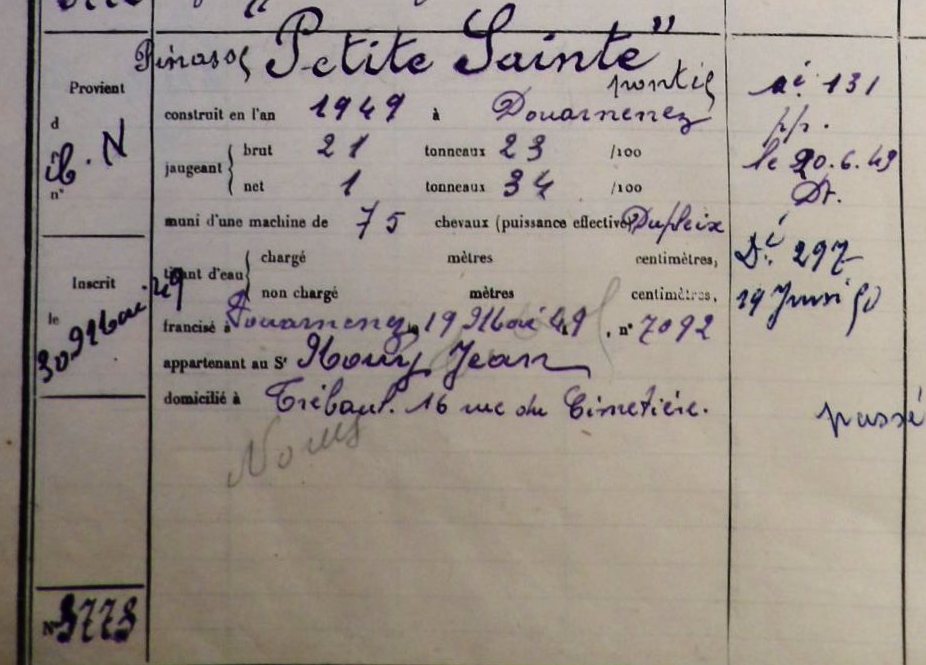 Petite Sainte"
Provient
d
ib. N
n°
construit en l'an 1949 à Douarnenez
jaugeant { brut 21 tonneaux 23 /100
net 1 tonneaux 34 /100
muni d'une machine de 75 chevaux (puissance effective) Dupleix
tirant d'eau { chargé mètres centimètres,
non chargé mètres centimètres,
francisé à Douarnenez le 19 Mai 49, n° 7092
appartenant au Sr Jean
domicilié à Tréboul. 16 rue du Cimetière.
Inscrit
le
30 Mai 49
N° 3773
131
pp.
le 20.6.49
Dt.
297
19 50
passé